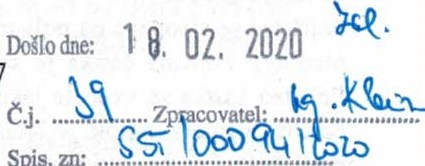 Došlo dne: 18. 02. 2020
Č.j. 39 Zpracovatel: Ing. Klein
Spis. zn: SST/00094/2020